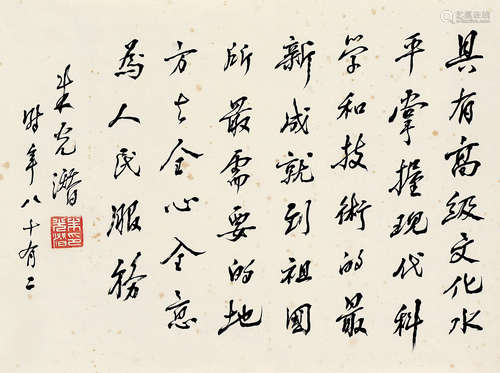 具有高级文化水
平掌握现代科
学和技術的最
新成就到祖國
所最需要的地
方去全心全意
為人民服務
朱光潛
時年八十有二
朱光潛印